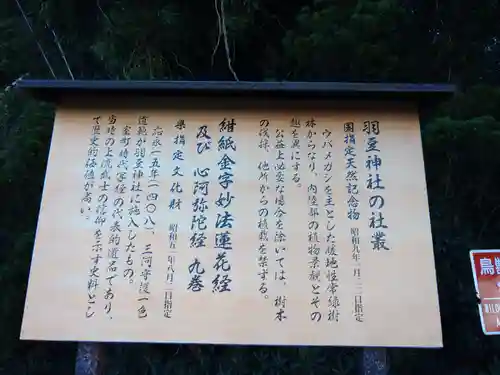 羽豆神社の社叢
国指定天然記念物 昭和九年一月二二日指定
ウバメガシを主とした暖地性常緑樹
林からなり、内陸部の植物景観とその
趣を異にする。
公益上必要な場合を除いては、樹木
の伐採、他所からの植栽を禁ずる。
紺紙金字妙法蓮花経
及び 心阿弥陀経 九巻
県指定文化財 昭和五一年八月二一日指定
応永一五年(一四〇八)、三河守護一色
道範が羽豆神社に施入したもの。
室町時代写経の代表的遺品であり、
当時の上流武士の信仰を示す史料とし
て歴史的価値が高い。
鳥獣
WILD